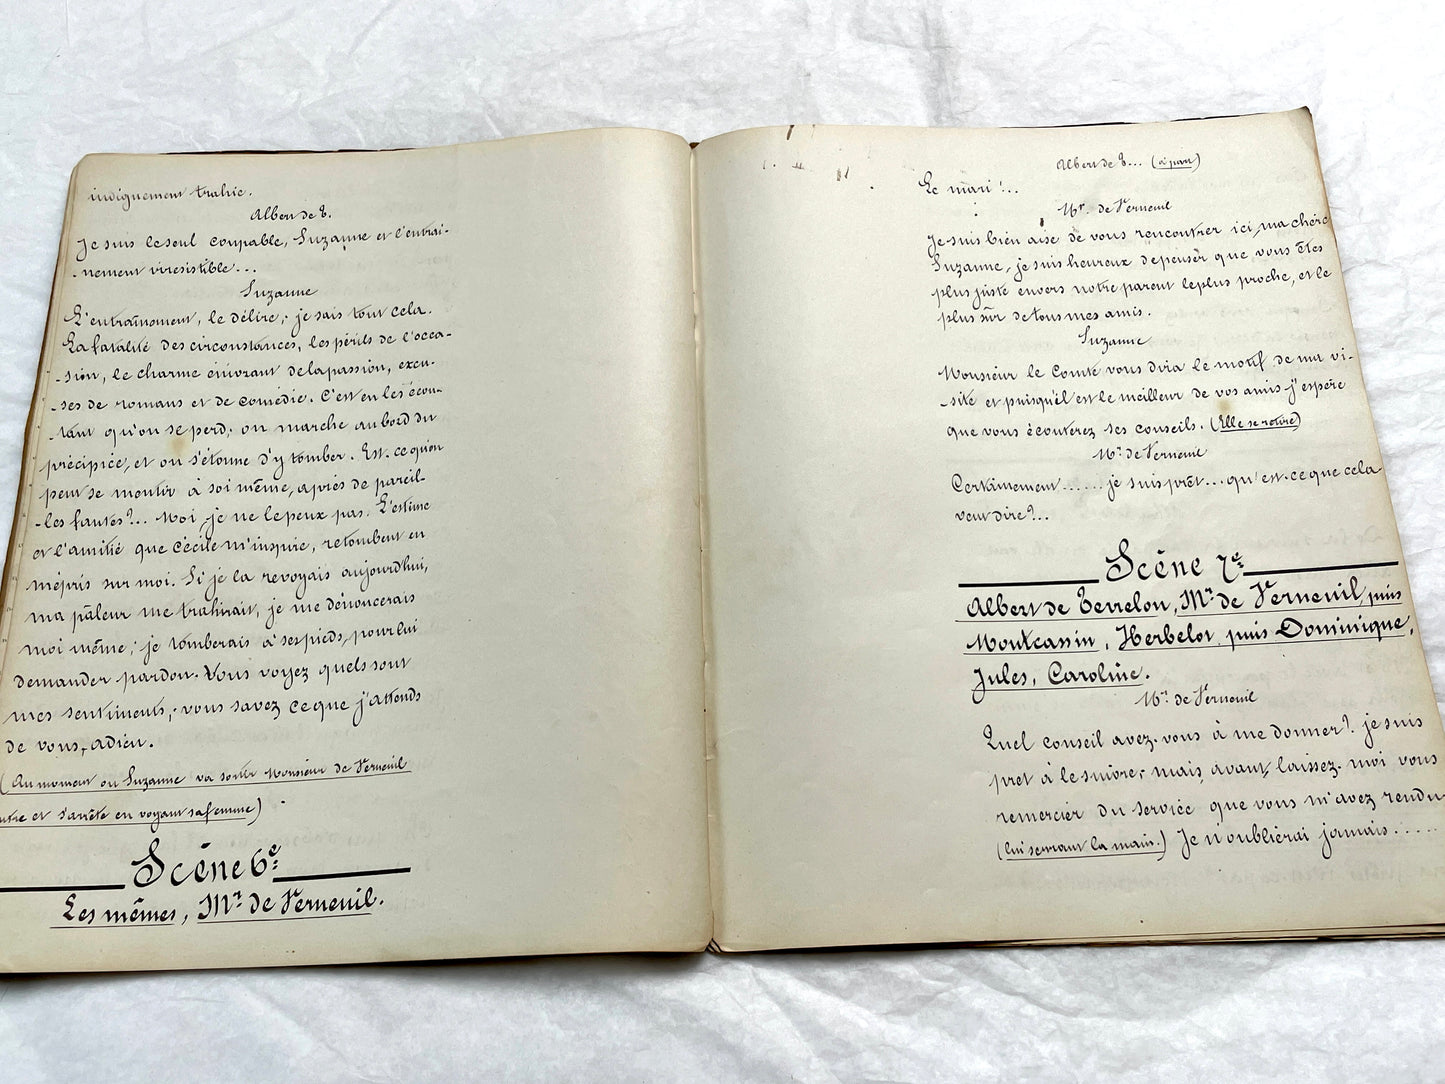 indignement trahie.
Albert de T.
Je suis le seul coupable, Suzanne et l'entrai-
-nement irresistible...
Suzanne
L'entraînement, le délire; je sais tout cela.
La fatalité des circonstances, les périls de l'occa-
-sion, le charme enivrant de la passion, excu-
-ses de romans et de comédie. C'est en les écou-
-tant qu'on se perd; on marche au bord du
précipice, et on s'étonne d'y tomber. Est-ce qu'on
peut se mentir à soi même, après de pareil-
-les fautes?... Moi, je ne le peux pas. L'estime
et l'amitié que Cécile m'inspire, retombent en
mépris sur moi. Si je la revoyais aujourd'hui,
ma pâleur me trahirait, je me dénoncerais
moi même; je tomberais à ses pieds, pour lui
demander pardon. Vous voyez quels sont
mes sentiments; vous savez ce que j'attends
de vous, adieu.
(Au moment ou Suzanne va sortir Monsieur de Verneuil
entre et s'arrête en voyant sa femme)
Scène 6e
Les mêmes, Mr de Verneuil.
Albert de T... (à part)
Le mari!...
Mr. de Verneuil
Je suis bien aise de vous rencontrer ici, ma chère
Suzanne, je suis heureux de penser que vous êtes
plus juste envers notre parent le plus proche, et le
plus sûr de tous mes amis.
Suzanne
Monsieur le Comte vous dira le motif de ma vi-
-site et puisqu'il est le meilleur de vos amis j'espère
que vous écouterez ses conseils. (Elle se retire)
Mr de Verneuil
Certainement...... je suis prêt... qu'est-ce que cela
veut dire?...
Scène 7e
Albert de Terrelon, Mr de Verneuil, puis
Montcassin, Herbelot, puis Dominique,
Jules, Caroline.
Mr de Verneuil
Quel conseil avez-vous à me donner? je suis
prêt à le suivre; mais, avant, laissez-moi vous
remercier du service que vous m'avez rendu
(lui serrant la main.) Je n'oublierai jamais.....